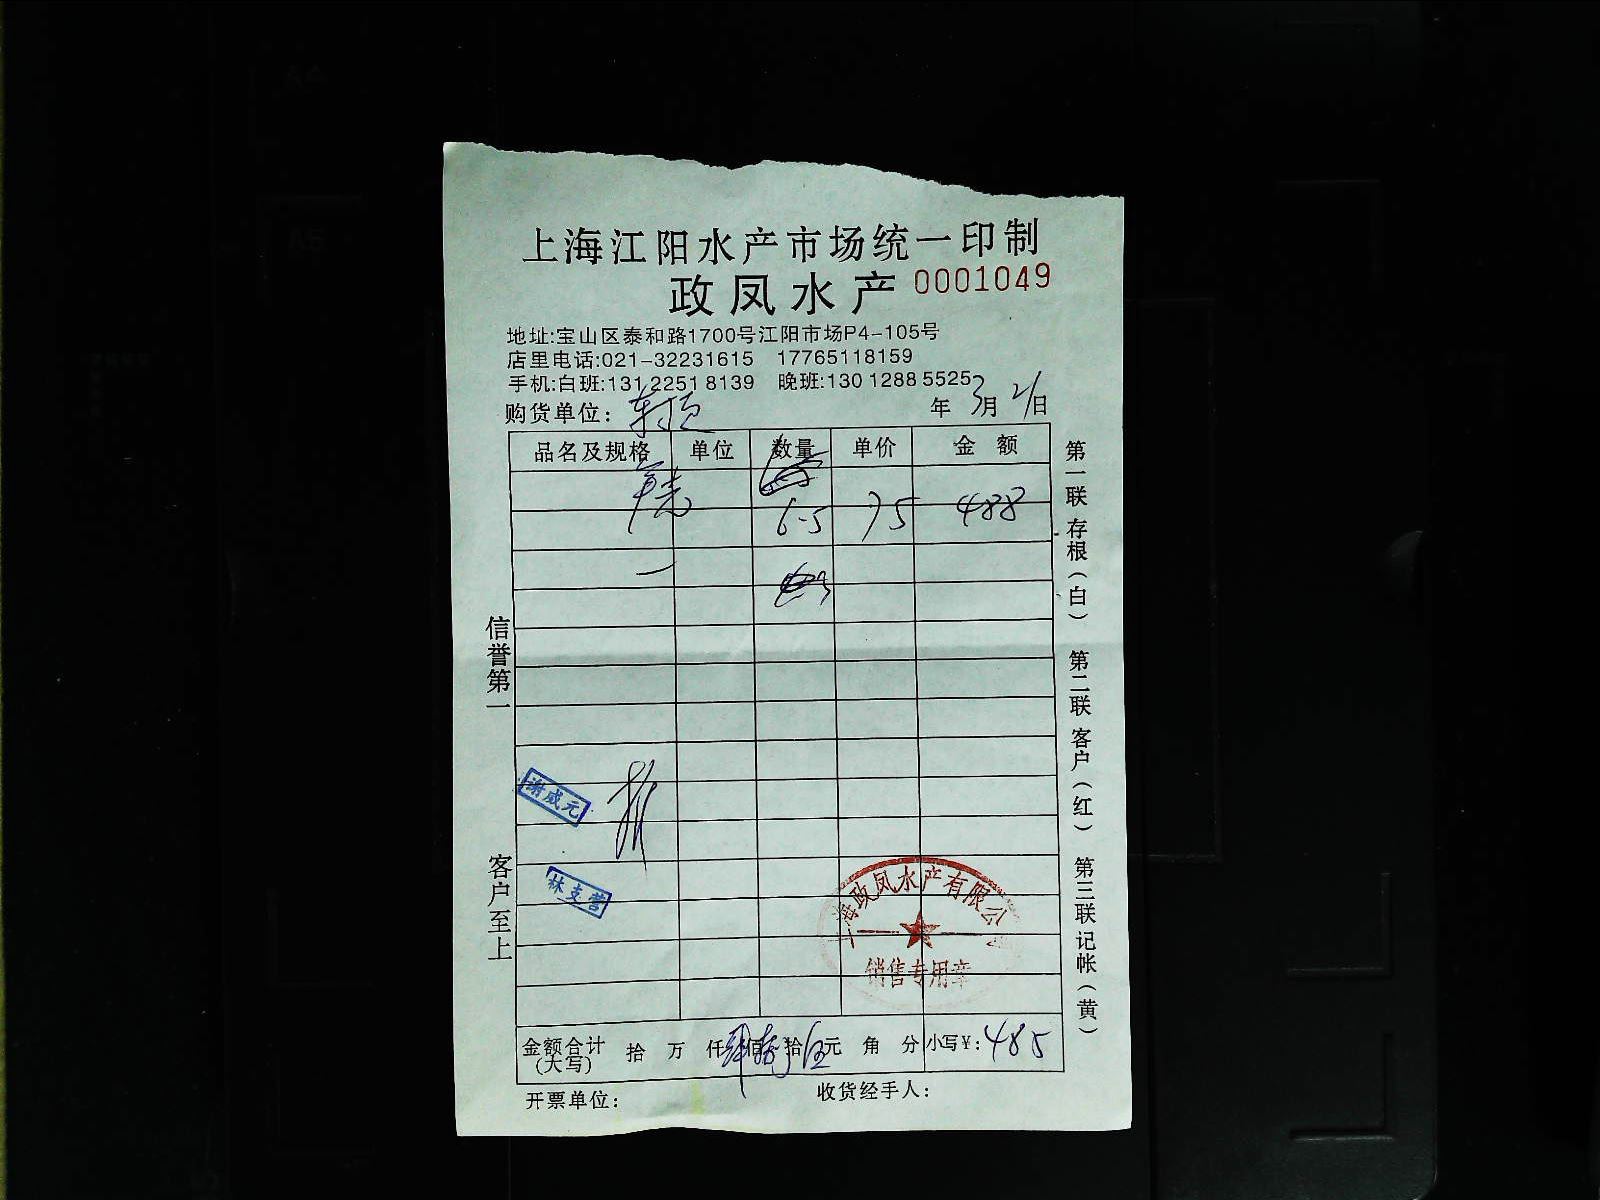 上海江阳水产市场统一印制
政凤水产 0001049
地址:宝山区泰和路1700号江阳市场P4-105号
店里电话:021-32231615 17765118159
手机:白班:131 2251 8139 晚班:130 1288 5525
购货单位: 年 3月 21日
品名及规格 单位 数量 单价 金额
6-5 75 488
信誉第一
客户至上
第一联存根(白) 第二联客户(红) 第三联记帐(黄)
谢成元
林支营
上海政凤水产有限公
销售专用章
金额合计(大写) 拾 万 仟 肆佰 捌拾 伍元 角 分 小写¥: 485
开票单位: 收货经手人: